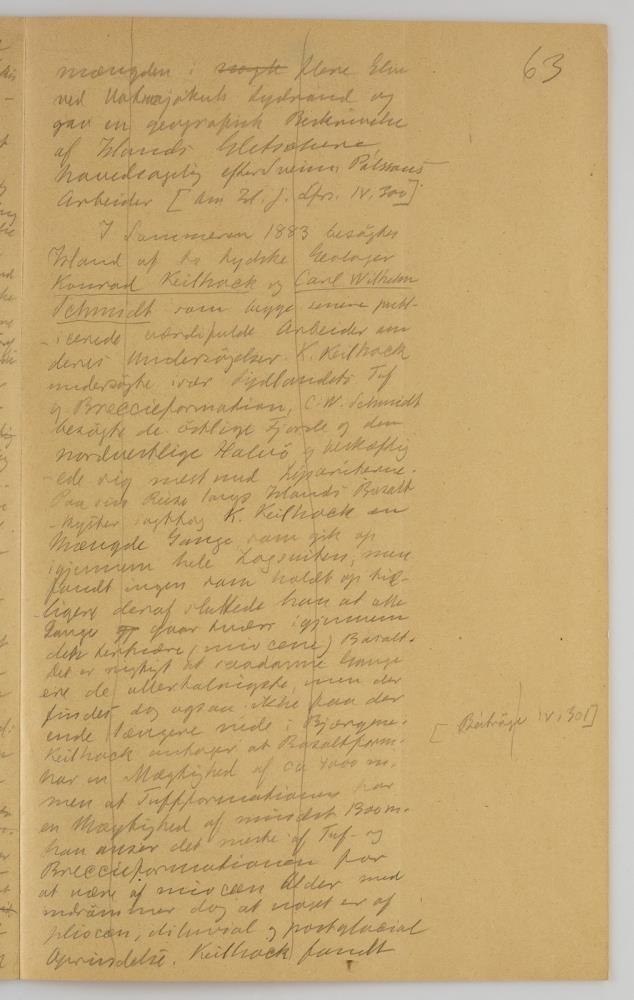 63
mængden i nogle flere Elve
ved Vatnajökuls Sydrand og
gav en geografisk Beskrivelse
af Islands Gletschere,
hovedsagelig efter Sveinn Pálssons
Arbeider [Am Zl. J. Lfr. IV, 300].
I Sommeren 1883 besögtes
Island af to tydske Geologer
Konrad Keilhack og Carl Wilhelm
Schmidt som begge senere publi-
cerede værdifulde Arbeider om
deres Undersögelser. K. Keilhack
undersögte især Sydlandets Tuf
og Breccieformation, C.W. Schmidt
besögte de östlige Fjorde og den
nordvestlige Halvö og beskæftig
-ede sig mest med Lipariterne.
Paa sin Reise langs Islands Basalt
-kyster iagttog K. Keilhack en
Mængde Gange som gik op
igjennem hele Lagsuiten, men
fandt ingen som holdt op tid-
ligere deraf sluttede han at alle
Gange gaar tværs igjennem
den tertiære (miocene) Basalt.
Det er rigtigt at saadanne Gange
ere de allertalrigste, men der
findes dog ogsaa ikke faa der
ende længere nede i Bjergene.
Keilhack antager at Basaltform.
har en Mægtighed af ca 4000 m.
[Beiträge IV, 301]
men at Tuffformationen har
en Mægtighed af mindst 1300 m.
han anser det meste af Tuf- og
Breccieformationen for
at være af miocen Alder med
indrömmer dog at noget er af
pliocen, diluvial og postglacial
Oprindelse. Keilhack fandt